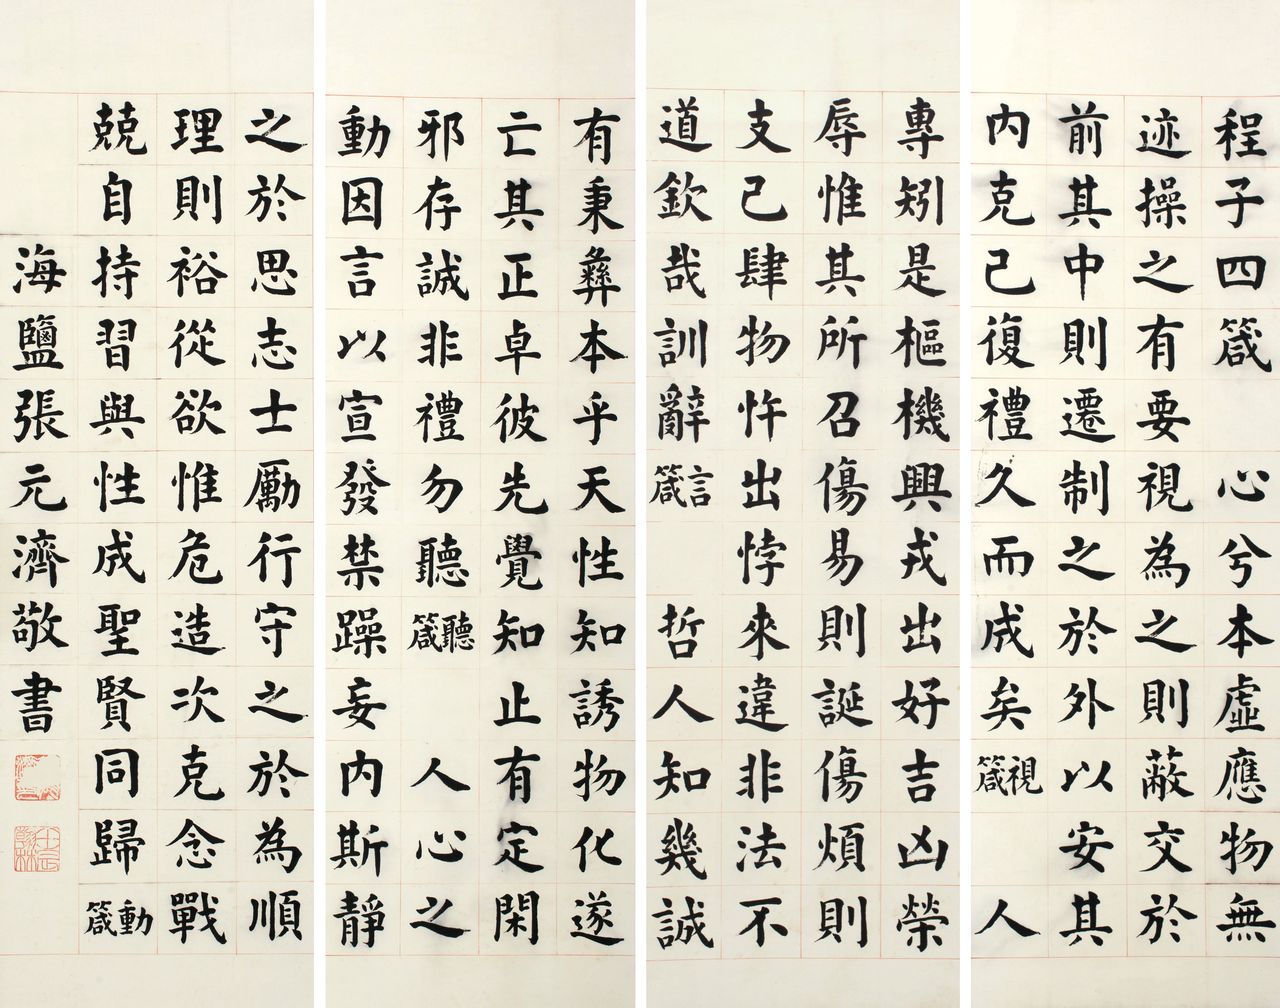 程子四箴 心兮本虛應物無
迹操之有要視為之則蔽交於
前其中則遷制之於外以安其
內克己復禮久而成矣 視箴 人
專矧是樞機興戎出好吉凶榮
辱惟其所召傷易則誕傷煩則
支己肆物忤出悖來違非法不
道欽哉訓辭 言箴 哲人知幾誠
有秉彝本乎天性知誘物化遂
亡其正卓彼先覺知止有定閑
邪存誠非禮勿聽 聽箴 人心之
動因言以宣發禁躁妄內斯靜
之於思志士勵行守之於為順
理則裕從欲惟危造次克念戰
兢自持習與性成聖賢同歸 動箴
海鹽張元濟敬書
壬辰翰林